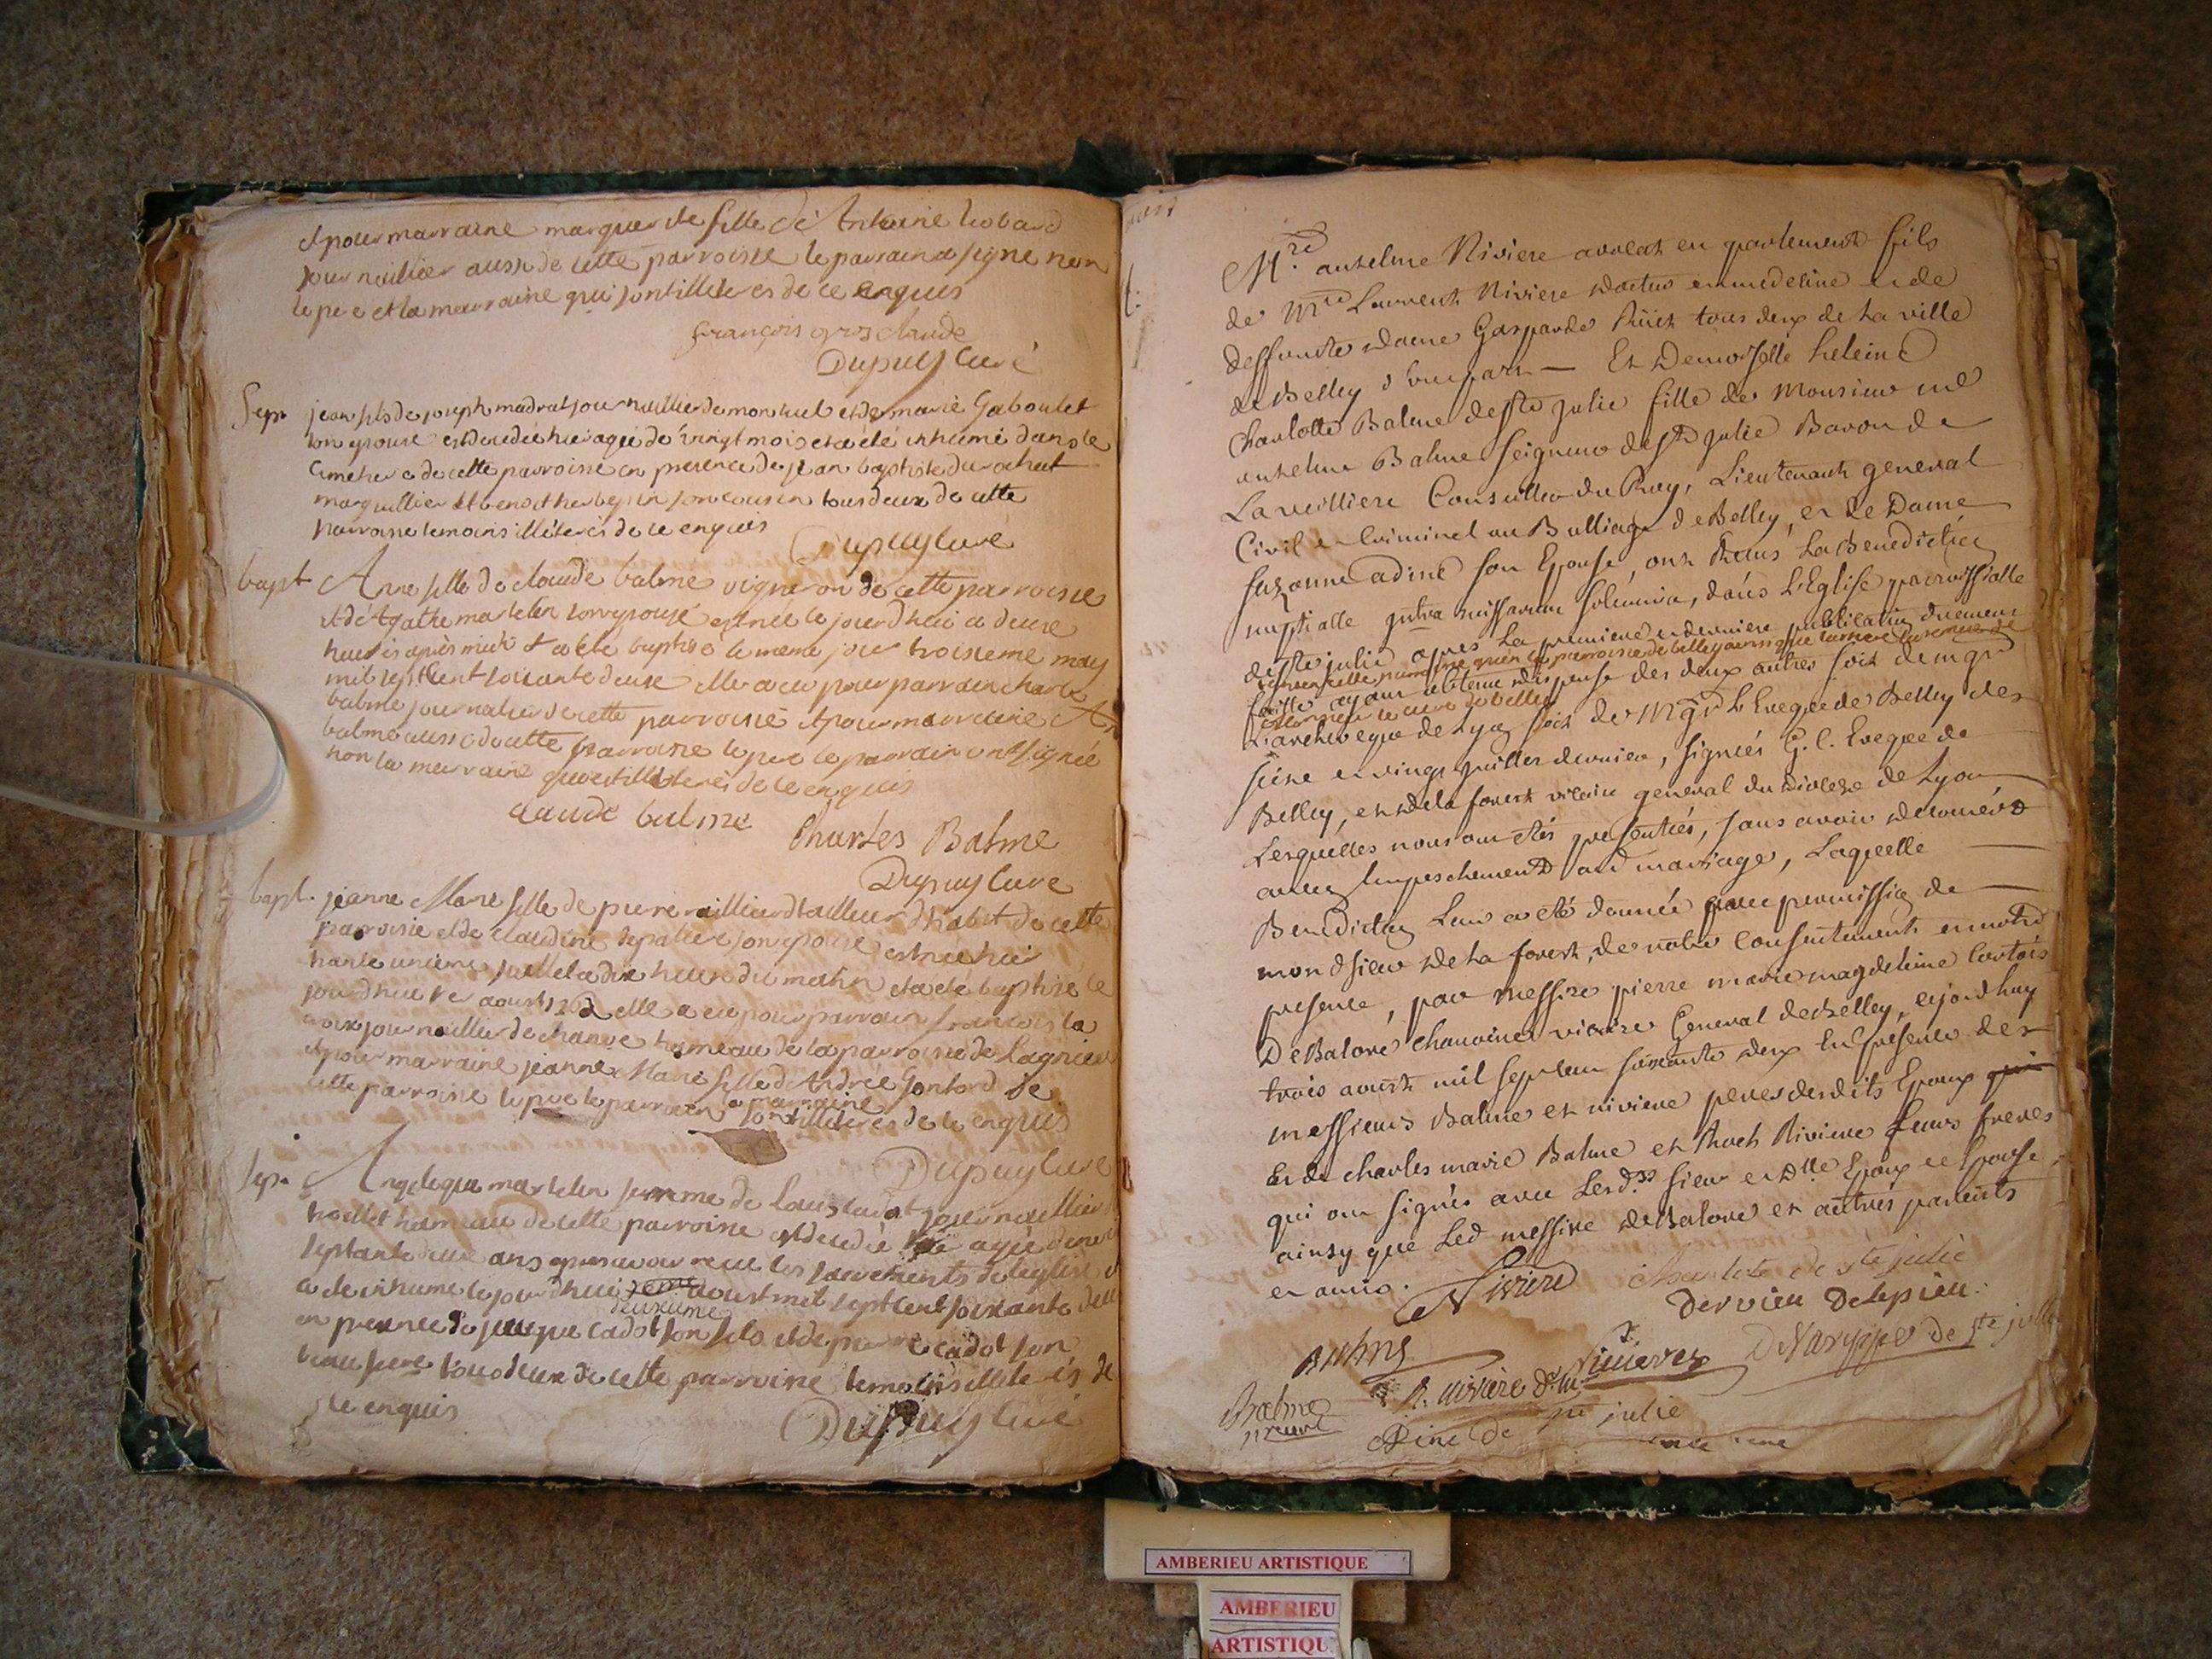 et pour marraine marguerite fille de Antoine
journaillier aussi de cette parroisse le parrain a signé non
le pere et la marraine qui sont illiterés de ce enquis
françois gros claude
Dupuy Curé
Sep. jean fils de joseph madrat journaillier de montuel et de marie Gaboulet
son epouse est decedé hier agé de vingt mois et a été inhumé dans le
cimetiere de cette parroisse en presence de jean baptiste durochat
marguillier et benoit son cousin tous deux de cette
parroisse temoins illiterés de ce enquis
Dupuy curé
bapt Anne fille de claude balme vigneron de cette parroisse
et d'Agathe martelin son epouse est née le jourd'hui a deux
heures après midi et a été baptisée le meme jour troisieme
mil sept cent soixante deux elle a eu pour parrain charle
balme journalier de cette parroisse et pour marraine
balme aussi de cette parroisse le pere le parrain ont signé
non la marraine qui est illiterés de ce enquis
claude balme
Charles Balme
Dupuy Curé
bapt. jeanne Marie fille de pierre tailleur d'habit de cette
parroisse et de claudine son epouse est née hier
trante unieme juillet a dix heures du matin et a été baptisée le
jourd'hui 1er aoust 1762 elle a eu pour parrain françois la
croix journaillier de hameau de la parroisse de Lagnieu
et pour marraine jeanne Marie fille d'André Gontard de
cette parroisse le pere le parrain et marraine sont illiterés de ce enquis
Dupuy Curé
Sep. Angelique martelin femme de journaillier
hameau de cette parroisse est decedée agée
septante deux ans apres avoir receu les sacrements de l'eglise
a été inhumé le jourd'hui deuxieme aoust mil sept cent soixante deux
en presence de cadot son fils et de pierre cadot son
beau frere tous deux de cette parroisse temoins illiterés de
ce enquis
Dupuy Curé
Mre. anselme Riviere avocat en parlement fils
de Mre Laurent Riviere docteur en medecine et de
deffunte dame Gasparde tous deux de la ville
de Belley d'une part — Et Demoiselle heleine
Charlotte Balme de ste julie fille de Monsieur me
anselme Balme Seigneur de ste julie Baron de
Laveilliere Conseiller du Roy, Lieutenant general
Civil et Criminel au Balliage de Belley, et de Dame
suzanne adine son Epouse, ont Receus La Benediction
nuptialle intra missarum solemnia, dans L'Eglise parroissialle
de ste julie apres La premiere et derniere publication duement
faitte ayant obtenu dispense des deux autres soit de mgr
L'archeveque de Lyon soit de Mgr L'Eveque de Belley des
seize et vingt juillet dernier, signées G. C. Eveque de
Belley, et de la forest vicaire general du diocese de Lyon
Lesquelles nous ont étés presentées, sans avoir decouvert
aucun Empeschement aud mariage, Laquelle
Benediction Leur a été donnée avec permission de
mondsieur de La forest, de notre Consentement en notre
presence, par messire pierre marie magdeleine Cortois
De Balore chanoine vicaire General de Belley, cejourdhuy
trois aoust mil sept cent soixante deux En presence des
messieurs Balme et riviere peres desdits Epoux
et de charles marie Balme et Roch Riviere Leurs freres
qui ont signés avec Lesd.ts sieur et Dlle Epoux et Epouse,
ainsy que Led messire de Balore et autres parents
et amis.
Riviere
Charlote de ste julie
Dervieu Delepieu
Balme
Rivieres
de ste julie
R. riviere
Balme
Adine de ste julie
AMBERIEU ARTISTIQUE
AMBERIEU
ARTISTIQU